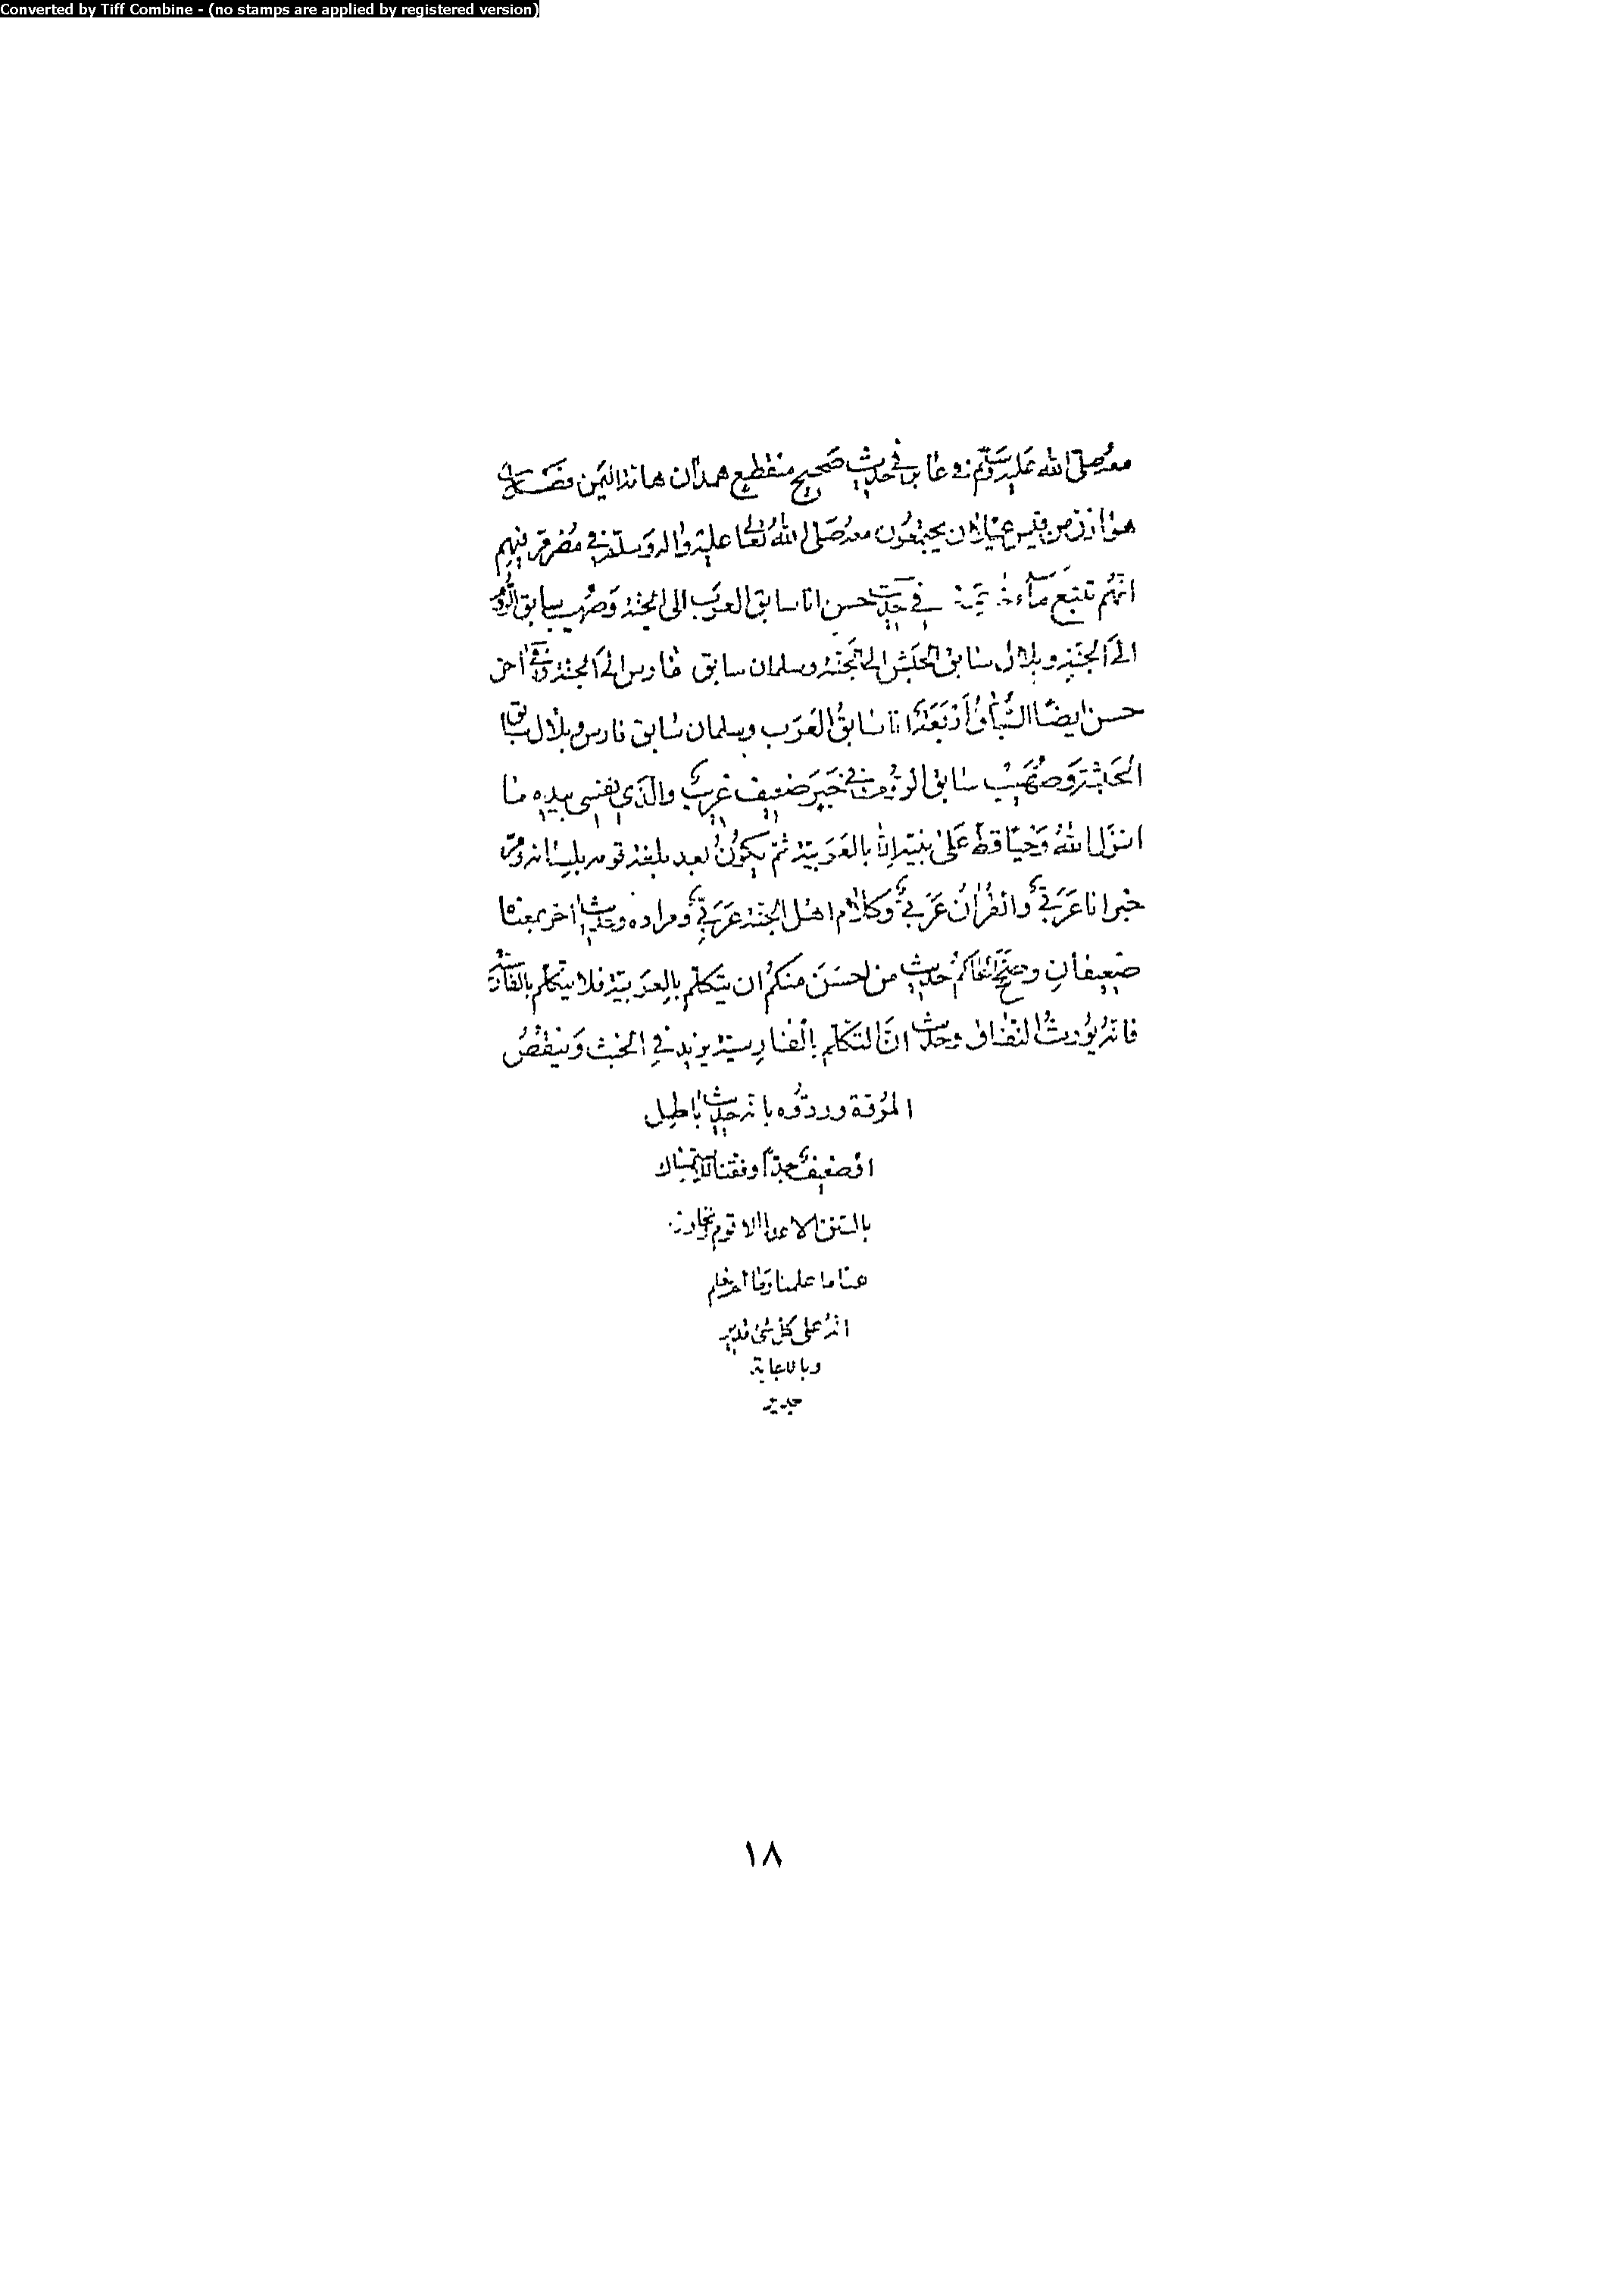 Converted by Tiff Combine - (no stamps are applied by registered version)
معه صلى الله عليه وسلم في حديث صحيح منقطع همدان هامة اليمن
هوازن من قيس عيلان يجتمعون معه صلى الله تعالى عليه واله وسلم في مضر
انهم تتبع ماء في حديث حسن انا سابق العرب الى الجنة وصهيب سابق الروم
الى الجنة وبلال سابق الحبش الى الجنة وسلمان سابق فارس الى الجنة وفي اخر
حسن ايضا السباق اربعة انا سابق العرب وسلمان سابق فارس وبلال سابق
الحبشة وصهيب سابق الروم وفي خبر ضعيف غريب والذي نفسي بيده ما
انزل الله وحيا قط على نبيه الا بالعربية ثم يكون بعد يبلغه قومه بلسانه ومر
خبر انا عربي والقران عربي وكلام اهل الجنة عربي ومراده وحديث اخر بمعناه
ضعيفان وصحح الحاكم حديث من احسن منكم ان يتكلم بالعربية فلا يتكلم بالفارسية
فانه يورث النفاق وحديث ان التكلم بالفارسية يزيد في الخبث وينقص
المروة وردوه بانه حديث باطل
او ضعيف جدا وفقنا للاستمساك
بالسنن الاقوم
عنا ما علمنا وما لم نعلم
انه على كل شئ قدير
وبالاجابة
جدير
١٨